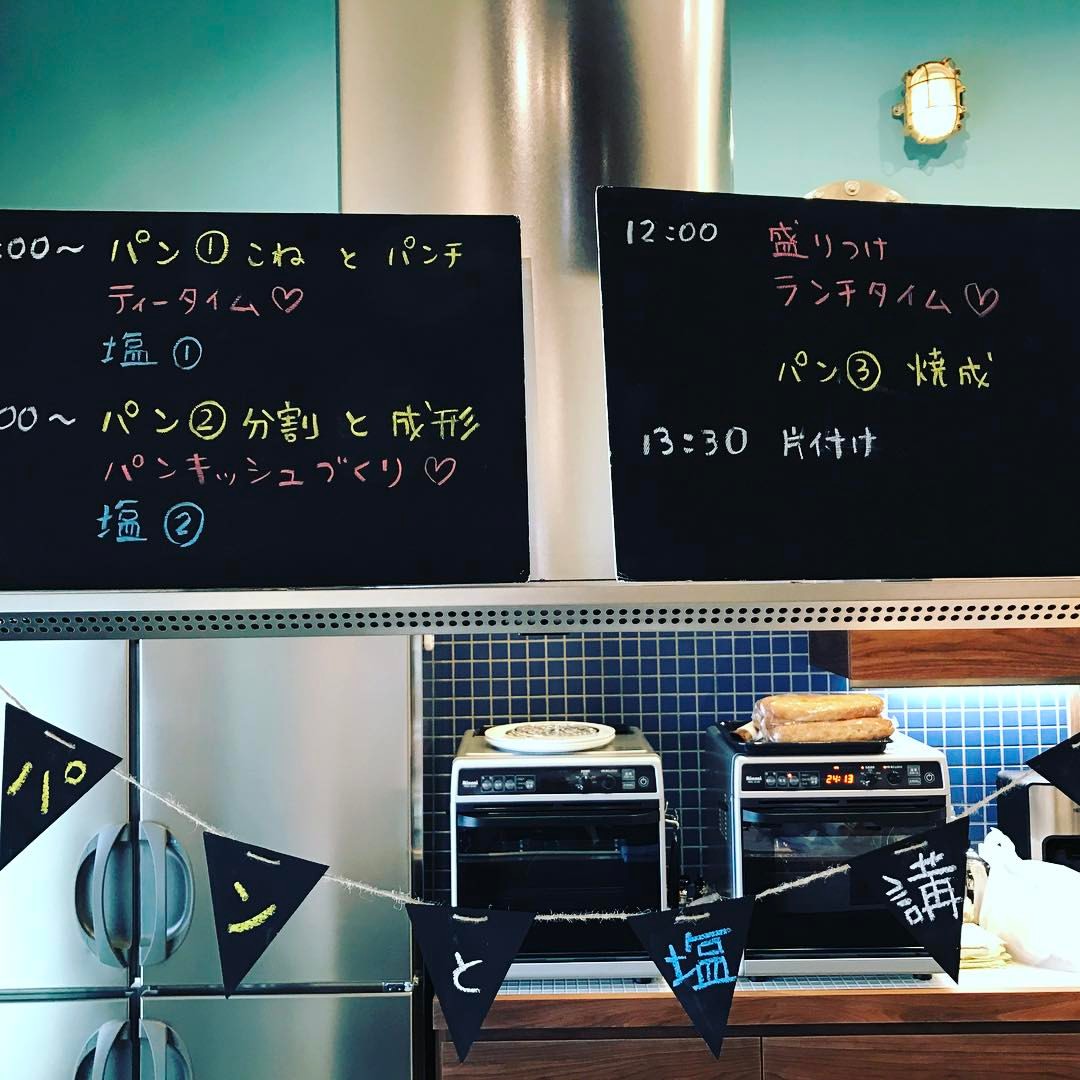 :00〜 パン①こねとパンチ
ティータイム♡
塩①
00〜 パン②分割と成形
パンキッシュづくり♡
塩②
12:00 盛りつけ
ランチタイム♡
パン③ 焼成
13:30 片付け
Rinnai
Rinnai 24:13
パンと塩講